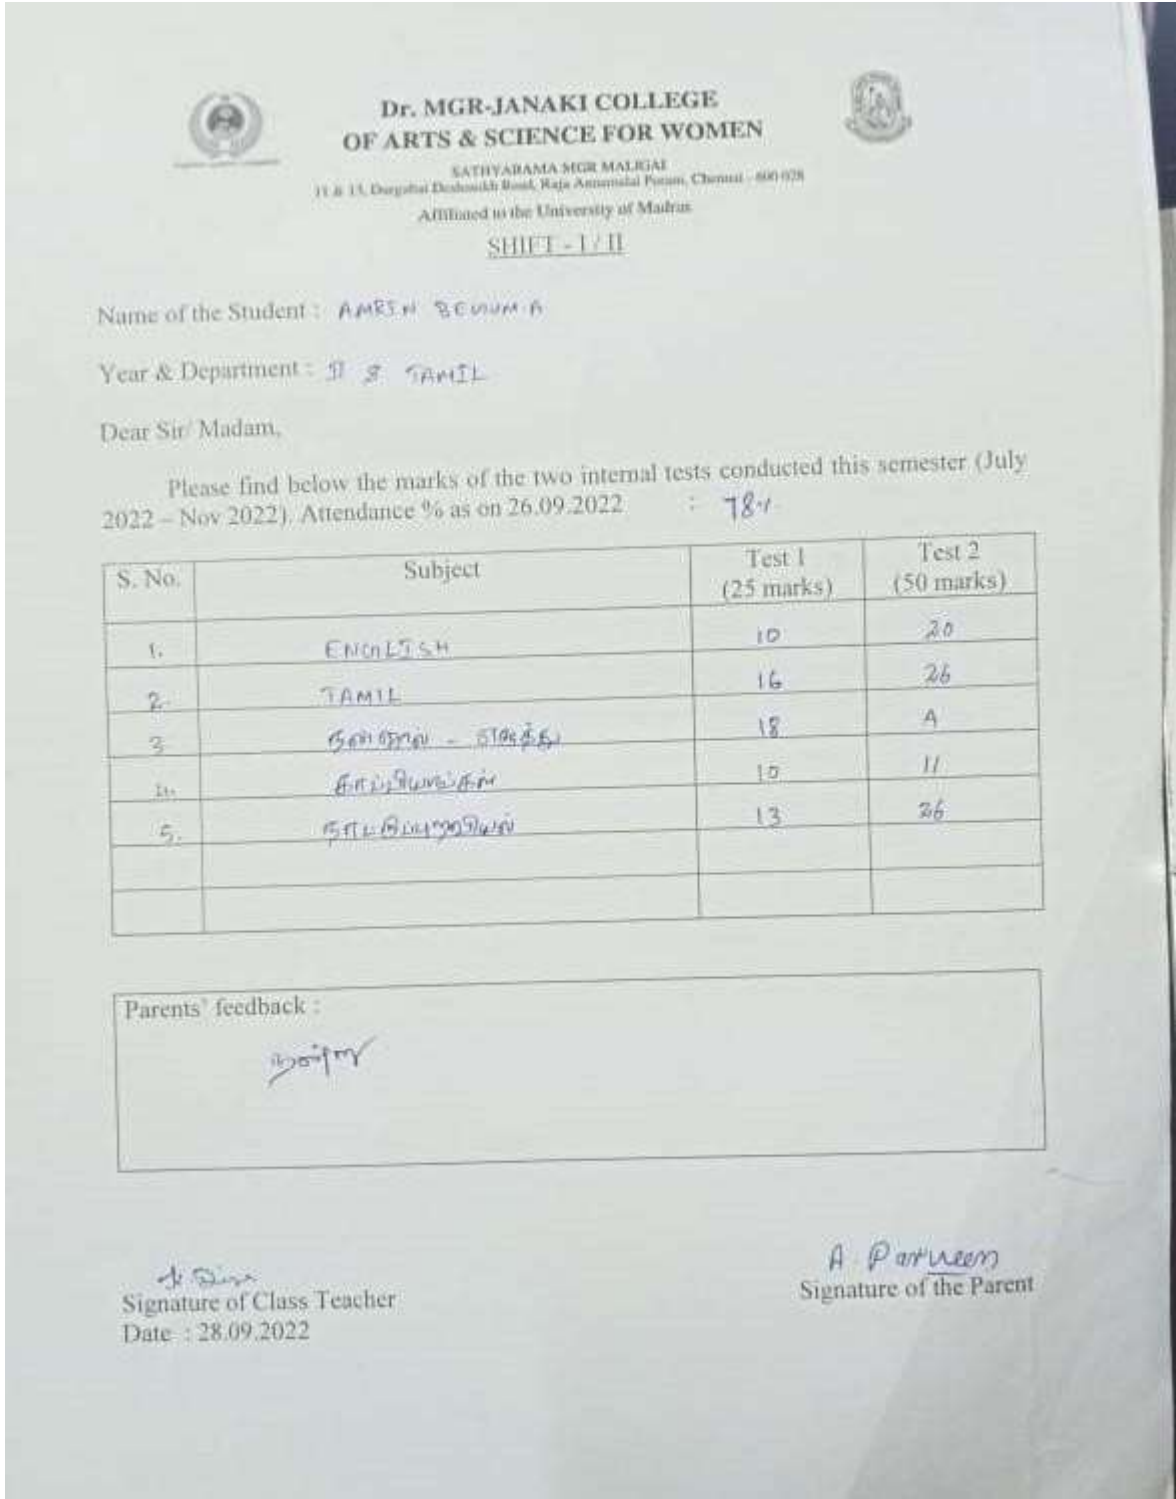 Dr. MGR-JANAKI COLLEGE
OF ARTS & SCIENCE FOR WOMEN
SATHYABAMA MGR MALIGAI
11 & 13, Durgabai Deshmukh Road, Raja Annamalai Puram, Chennai - 600 028
Affiliated to the University of Madras
SHIFT - I / II
Name of the Student : AMREN BEGUM.A
Year & Department : II TAMIL
Dear Sir/ Madam,
Please find below the marks of the two internal tests conducted this semester (July
2022 – Nov 2022). Attendance % as on 26.09.2022 : 78%
S. No. Subject Test 1 (25 marks) Test 2 (50 marks)
1. ENGLISH 10 20
2. TAMIL 16 26
3 நன்னூல் - எழுத்து 18 A
4. காப்பியங்கள் 10 11
5. நாட்டுப்புறவியல் 13 26
Parents' feedback :
நன்று
A Parveen
Signature of Class Teacher Signature of the Parent
Date : 28.09.2022